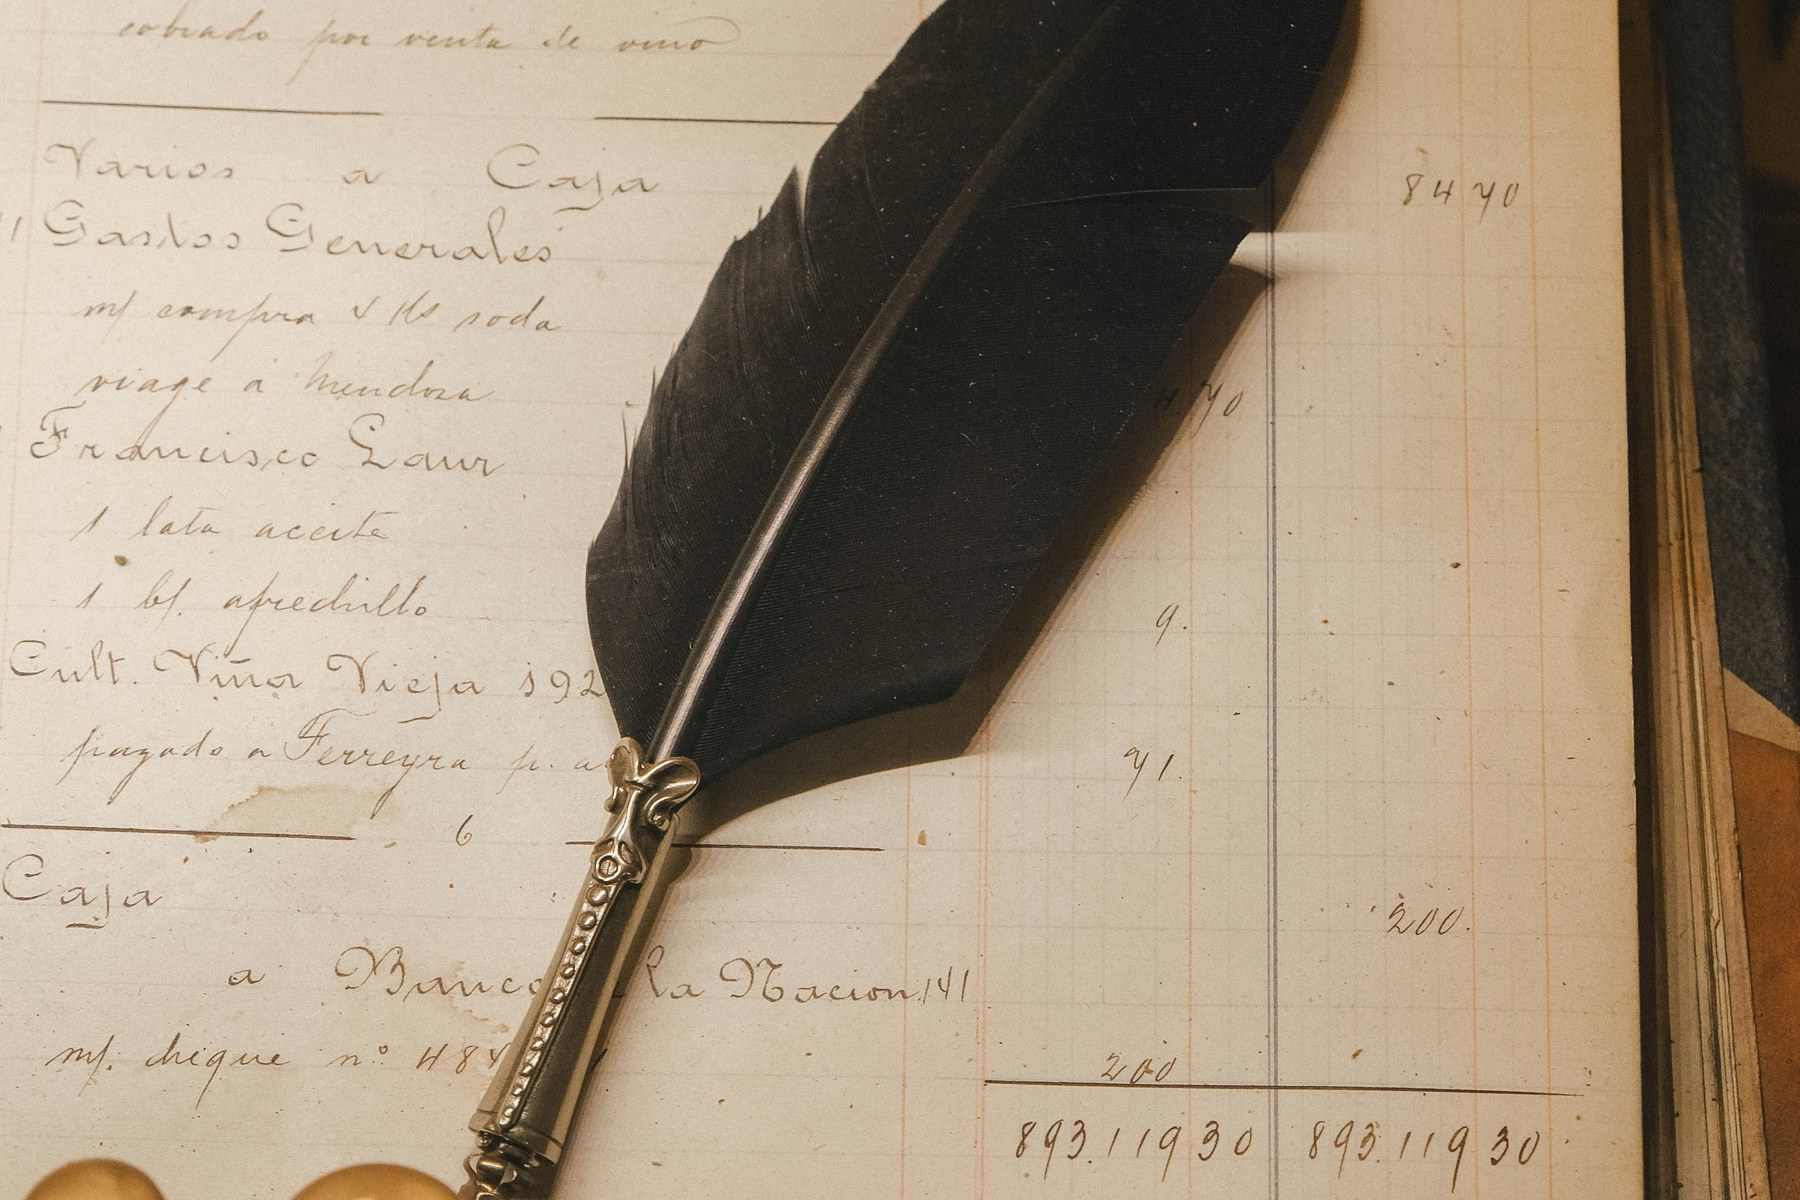 cobrado por venta de vino
Varios a Caja 84 70
Gastos Generales
m/ compra soda
viage a Mendoza 4.70
Francisco Gaur
1 lata aceite
1 bl. afrechillo 9.
Cult. Viña Vieja 192
pagado a Ferreyra p. a 71.
6
Caja 200.
a Banco La Nacion 141
m/. cheque nº 484 200
893.119 30 893.119 30